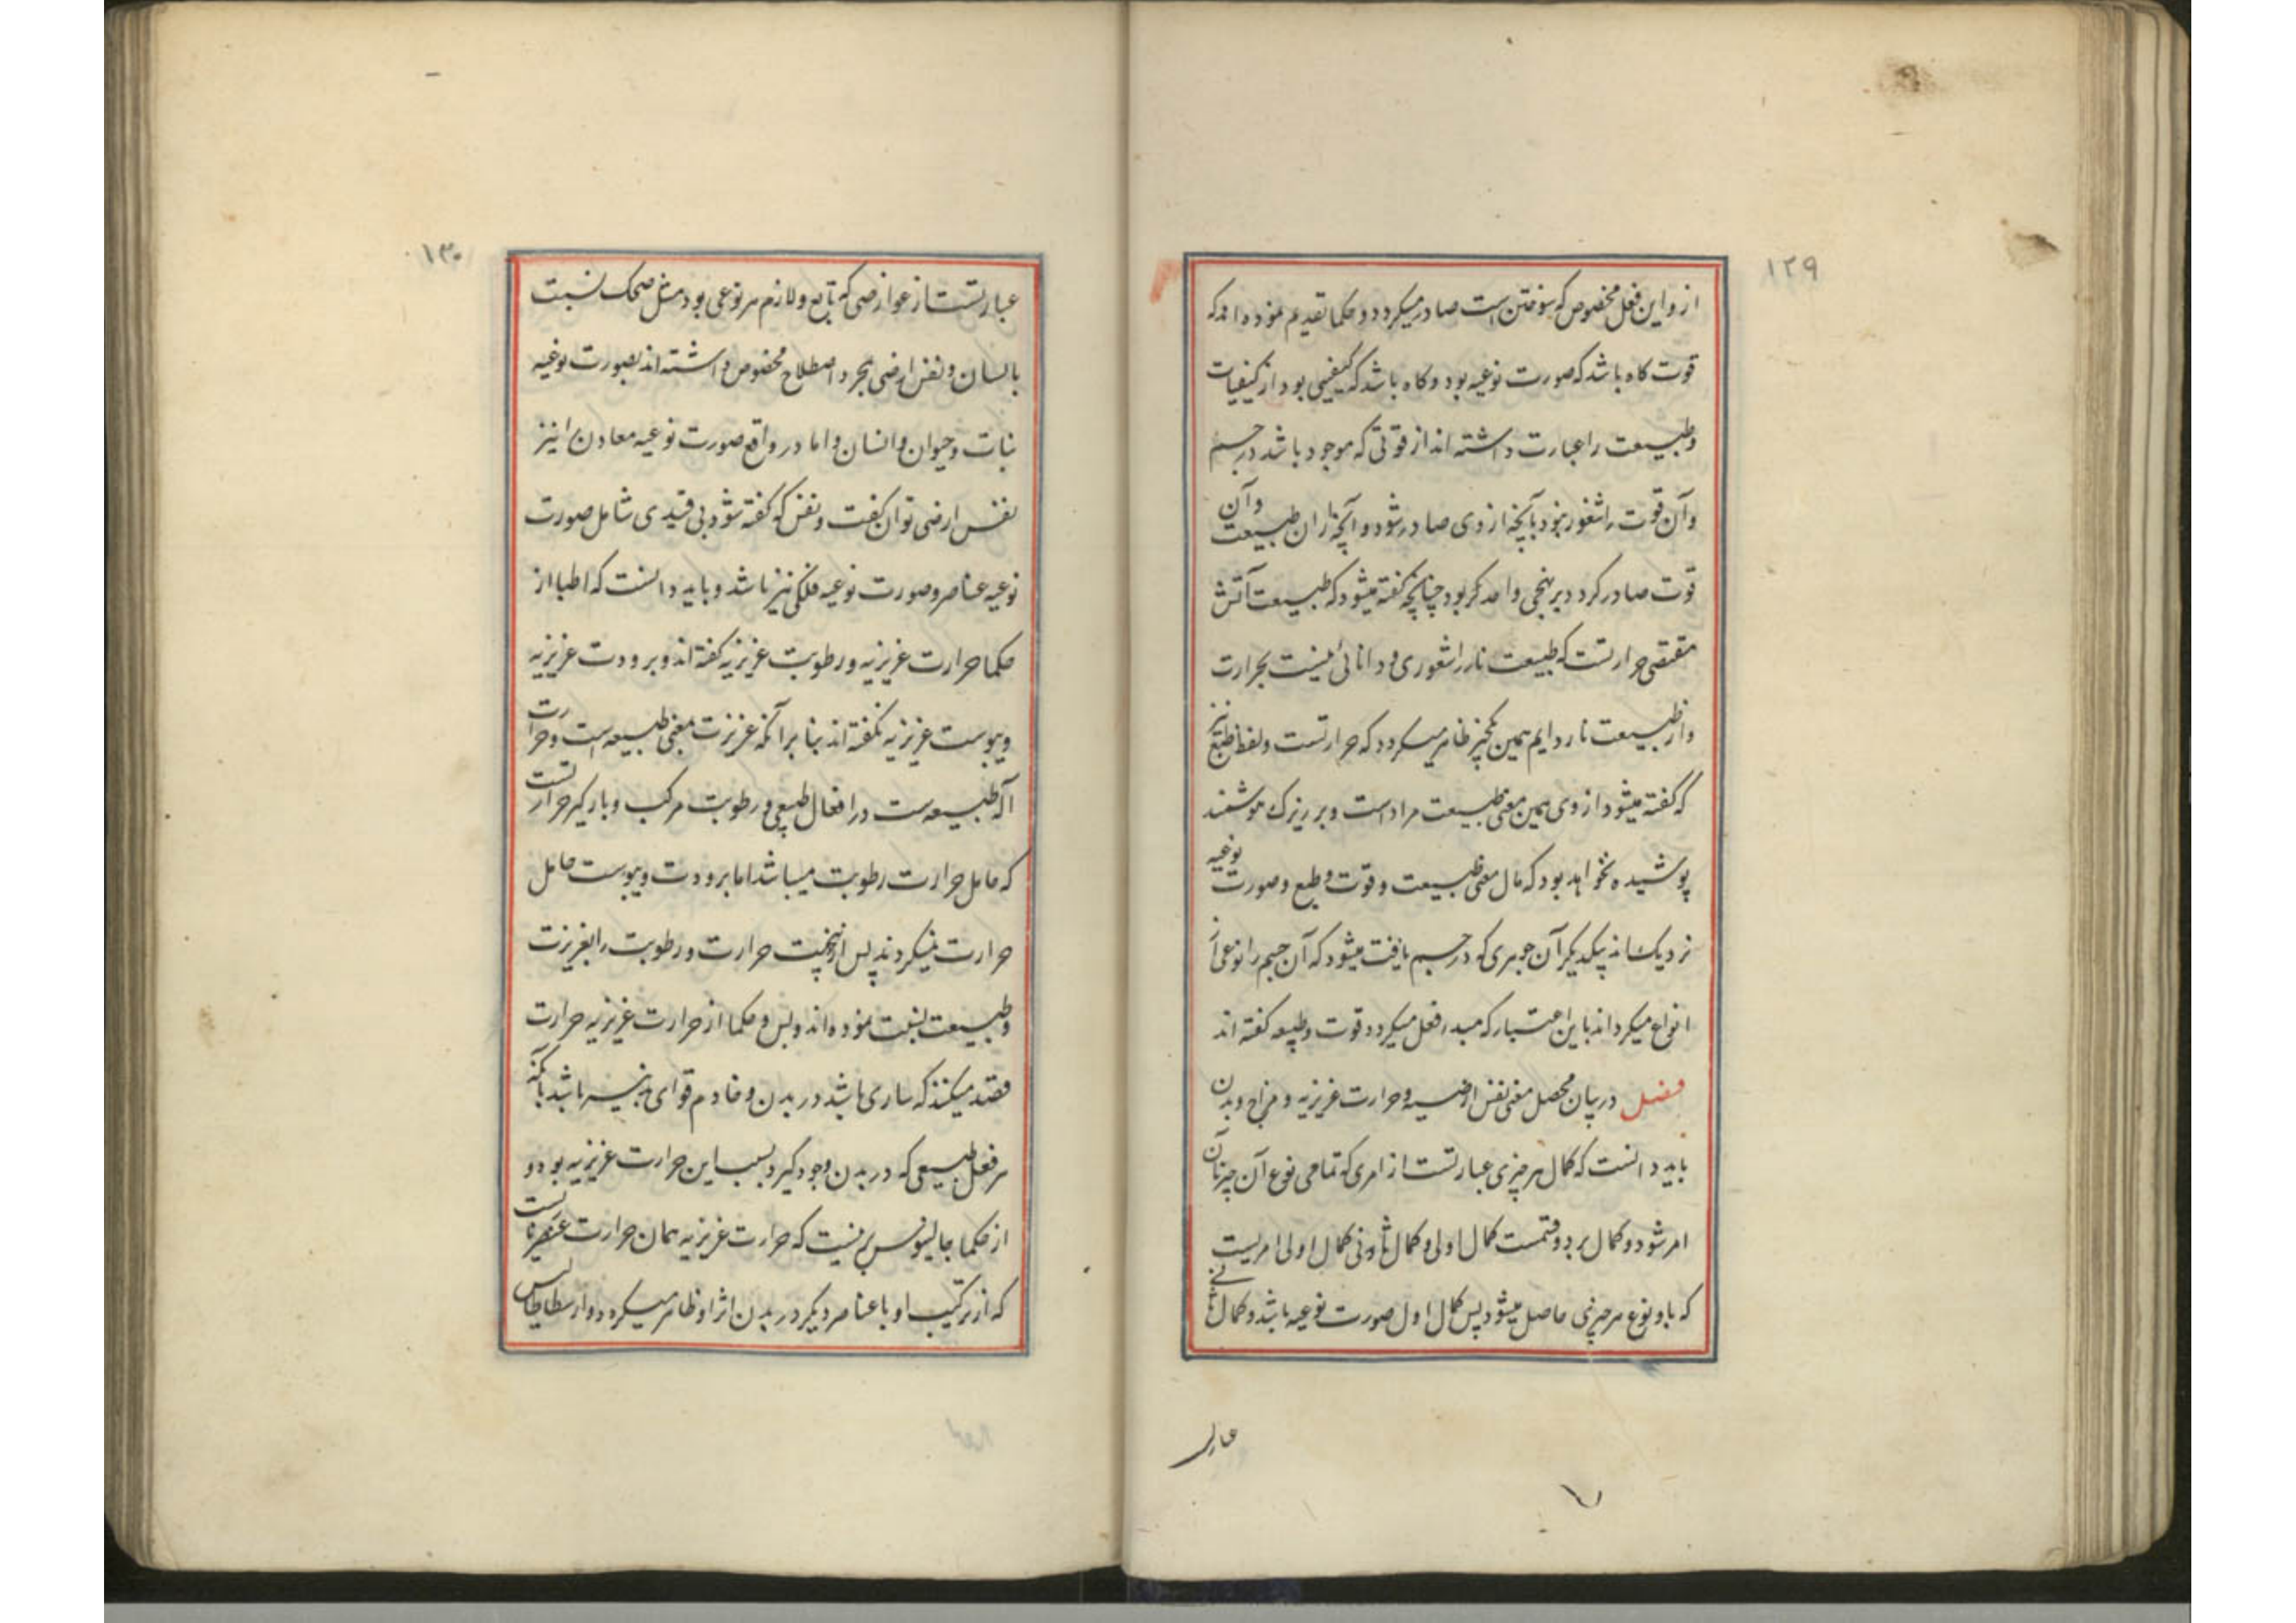 ۱۲۹
از و این فعل مخصوص که سوختن است صادر میکردد و حکما تقدیم نموده اند که
قوت کاه باشد که صورت نوعیه بود و کاه باشد که کیفیتی بود از کیفیات
و طبیعت را عبارت داشته اند از قوتی که موجود باشد در جسم
و آن قوت را شعور نبود بآنچه از وی صادر شود و آنچه از ان طبیعت و آن
قوت صادر کردد بر نهجی واحد کر بود چنانچه کفته میشود که طبیعت آتش
مقتضی حرارتست که طبیعت نار را شعوری و دانائی نیست بحرارت
و از طبیعت نار دایم همین یکچیز ظاهر میکردد که حرارتست و لفظ طبع نیز
که کفته میشود از وی همین معنی طبیعت مراد است و بر زیرک هوشمند
پوشیده نخواهد بود که مال معنی طبیعت و قوت و طبع و صورت نوعیه
نزدیک اند بیکدیکر آن جوهری که در جسم یافت میشود که آن جسم را نوعی از
انواع میکرداند باین اعتبار که مبدء فعل میکردد قوت و طبیعه کفته اند
فصل در بیان محصل معنی نفس ارضیه و حرارت غریزیه و مزاج و بدن
باید دانست که کمال هر چیزی عبارتست از امری که تمامی نوع آن چیز بآن
امر شود و کمال بر دو قسمست کمال اولی و کمال ثانوی کمال اولی امریست
که باو نوع هر چیزی حاصل میشود پس کمال اول صورت نوعیه باشد و کمال ثانی
۱۳۰
عبارتست از عوارضی که تابع و لازم هر نوعی بود مثل ضحک نسبت
بانسان و نفس ارضی بمجرد اصطلاح مخصوص داشته اند بصورت نوعیه
نبات و حیوان و انسان و اما در واقع صورت نوعیه معادن را نیز
نفس ارضی توان کفت و نفس که کفته شود بی قیدی شامل صورت
نوعیه عناصر و صورت نوعیه فلکی نیز باشد و باید دانست که اطبا از
حکما حرارت غریزیه و رطوبت غریزیه کفته اند و برودت غریزیه
و یبوست غریزیه نکفته اند بنا بر آنکه غریزت بمعنی طبیعه است و حرارت
آله طبیعه ست در افعال طبیعی و رطوبت مرکب و بارکیر حرارتست
که حامل حرارت رطوبت میباشد اما برودت و یبوست حامل
حرارت نمیکردند پس ازینجهت حرارت و رطوبت را بغریزت
و طبیعت نسبت نموده اند و بس و حکما از حرارت غریزیه حرارت
قصد میکنند که ساری باشد در بدن و خادم قوای بدنیه باشد بآنکه
هر فعل طبیعی که در بدن وجود کیرد بسبب این حرارت غریزیه بود و
از حکما جالینوس برینست که حرارت غریزیه همان حرارت عنصریه ناریست
که از ترکیب او با عناصر دیکر در بدن اثر او ظاهر میکردد و ارسطاطالیس